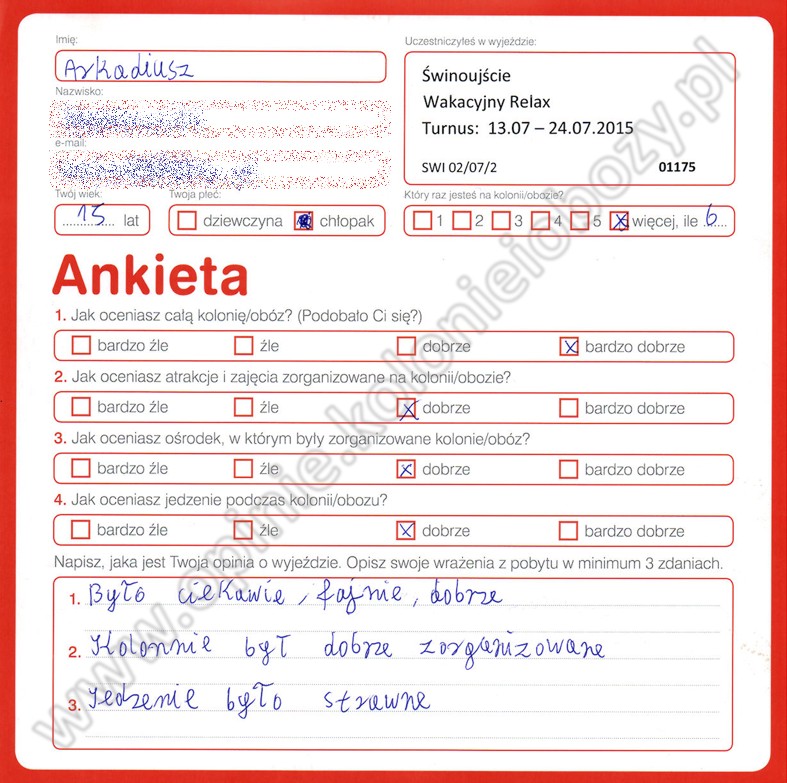 Imię:
Uczestniczyłeś w wyjeździe:
Arkadiusz
Świnoujście
Wakacyjny Relax
Turnus: 13.07 – 24.07.2015
SWI 02/07/2 01175
Nazwisko:
e-mail:
Twój wiek:
Twoja płeć:
Który raz jesteś na kolonii/obozie?
15 lat
dziewczyna chłopak
1 2 3 4 5 więcej, ile 6
Ankieta
1. Jak oceniasz całą kolonię/obóz? (Podobało Ci się?)
bardzo źle źle dobrze bardzo dobrze
2. Jak oceniasz atrakcje i zajęcia zorganizowane na kolonii/obozie?
bardzo źle źle dobrze bardzo dobrze
3. Jak oceniasz ośrodek, w którym były zorganizowane kolonie/obóz?
bardzo źle źle dobrze bardzo dobrze
4. Jak oceniasz jedzenie podczas kolonii/obozu?
bardzo źle źle dobrze bardzo dobrze
Napisz, jaka jest Twoja opinia o wyjeździe. Opisz swoje wrażenia z pobytu w minimum 3 zdaniach.
1. Było ciekawie, fajnie, dobrze
2. Kolonnie był dobrze zorganizowane
3. Jedzenie było strawne
www.opinie.kolonieiobozy.pl